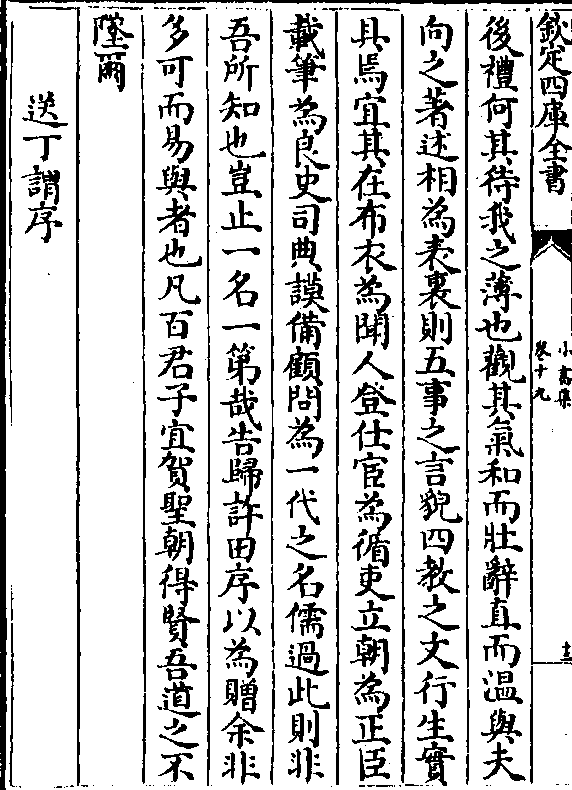 欽定四庫全書
小畜集
卷十九
十二
後禮何其待我之薄也觀其氣和而壯辭直而温與夫
向之著述相為表裏則五事之言貌四教之文行生實
具焉宜其在布衣為聞人登仕宦為循吏立朝為正臣
載筆為良史司典謨備顧問為一代之名儒過此則非
吾所知也豈止一名一第哉告歸許田序以為贈余非
多可而易與者也凡百君子宜賀聖朝得賢吾道之不
墜爾
送丁謂序